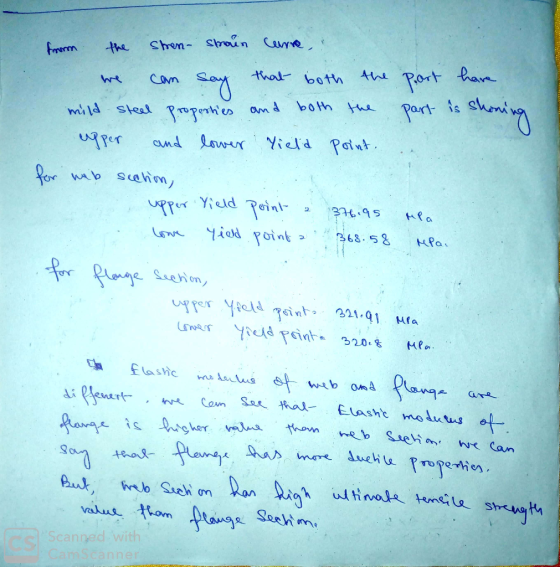 from the stress-strain curve,
we can say that both the part have
mild steel properties and both the part is showing
upper and lower Yield point.
for web section,
upper Yield point = 376.95 MPa
lower Yield point = 368.58 MPa.
for flange section,
upper yield point = 321.91 MPa
lower yield point = 320.8 MPa
Elastic modulus of web and flange are
different. we can see that Elastic modulus of
flange is higher value than web section. we can
say that flange has more ductile properties.
But, web section has high ultimate tensile strength
value than flange section.
CS Scanned with
CamScanner